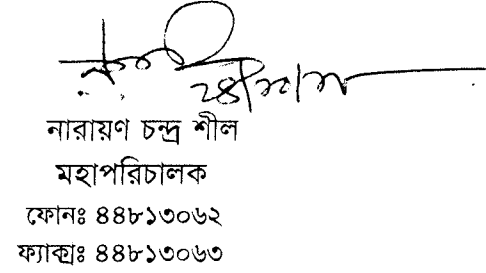 নারায়ণ চন্দ্র শীল
মহাপরিচালক
ফোনঃ ৪৪৮১৩০৬২
ফ্যাক্সঃ ৪৪৮১৩০৬৩